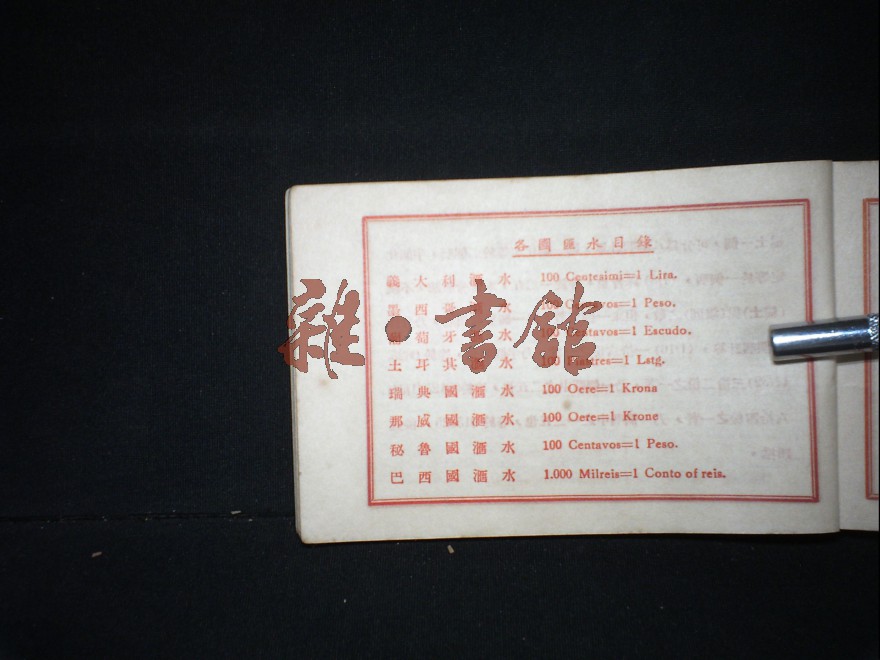 各國匯水目錄
義大利滙水 100 Centesimi=1 Lira.
墨西哥滙水 100 Centavos=1 Peso.
葡萄牙滙水 100 Centavos=1 Escudo.
土耳其滙水 100 Piastres=1 Lstg.
瑞典國滙水 100 Oere=1 Krona
那威國滙水 100 Oere=1 Krone
秘魯國滙水 100 Centavos=1 Peso.
巴西國滙水 1.000 Milreis=1 Conto of reis.
雜·書館